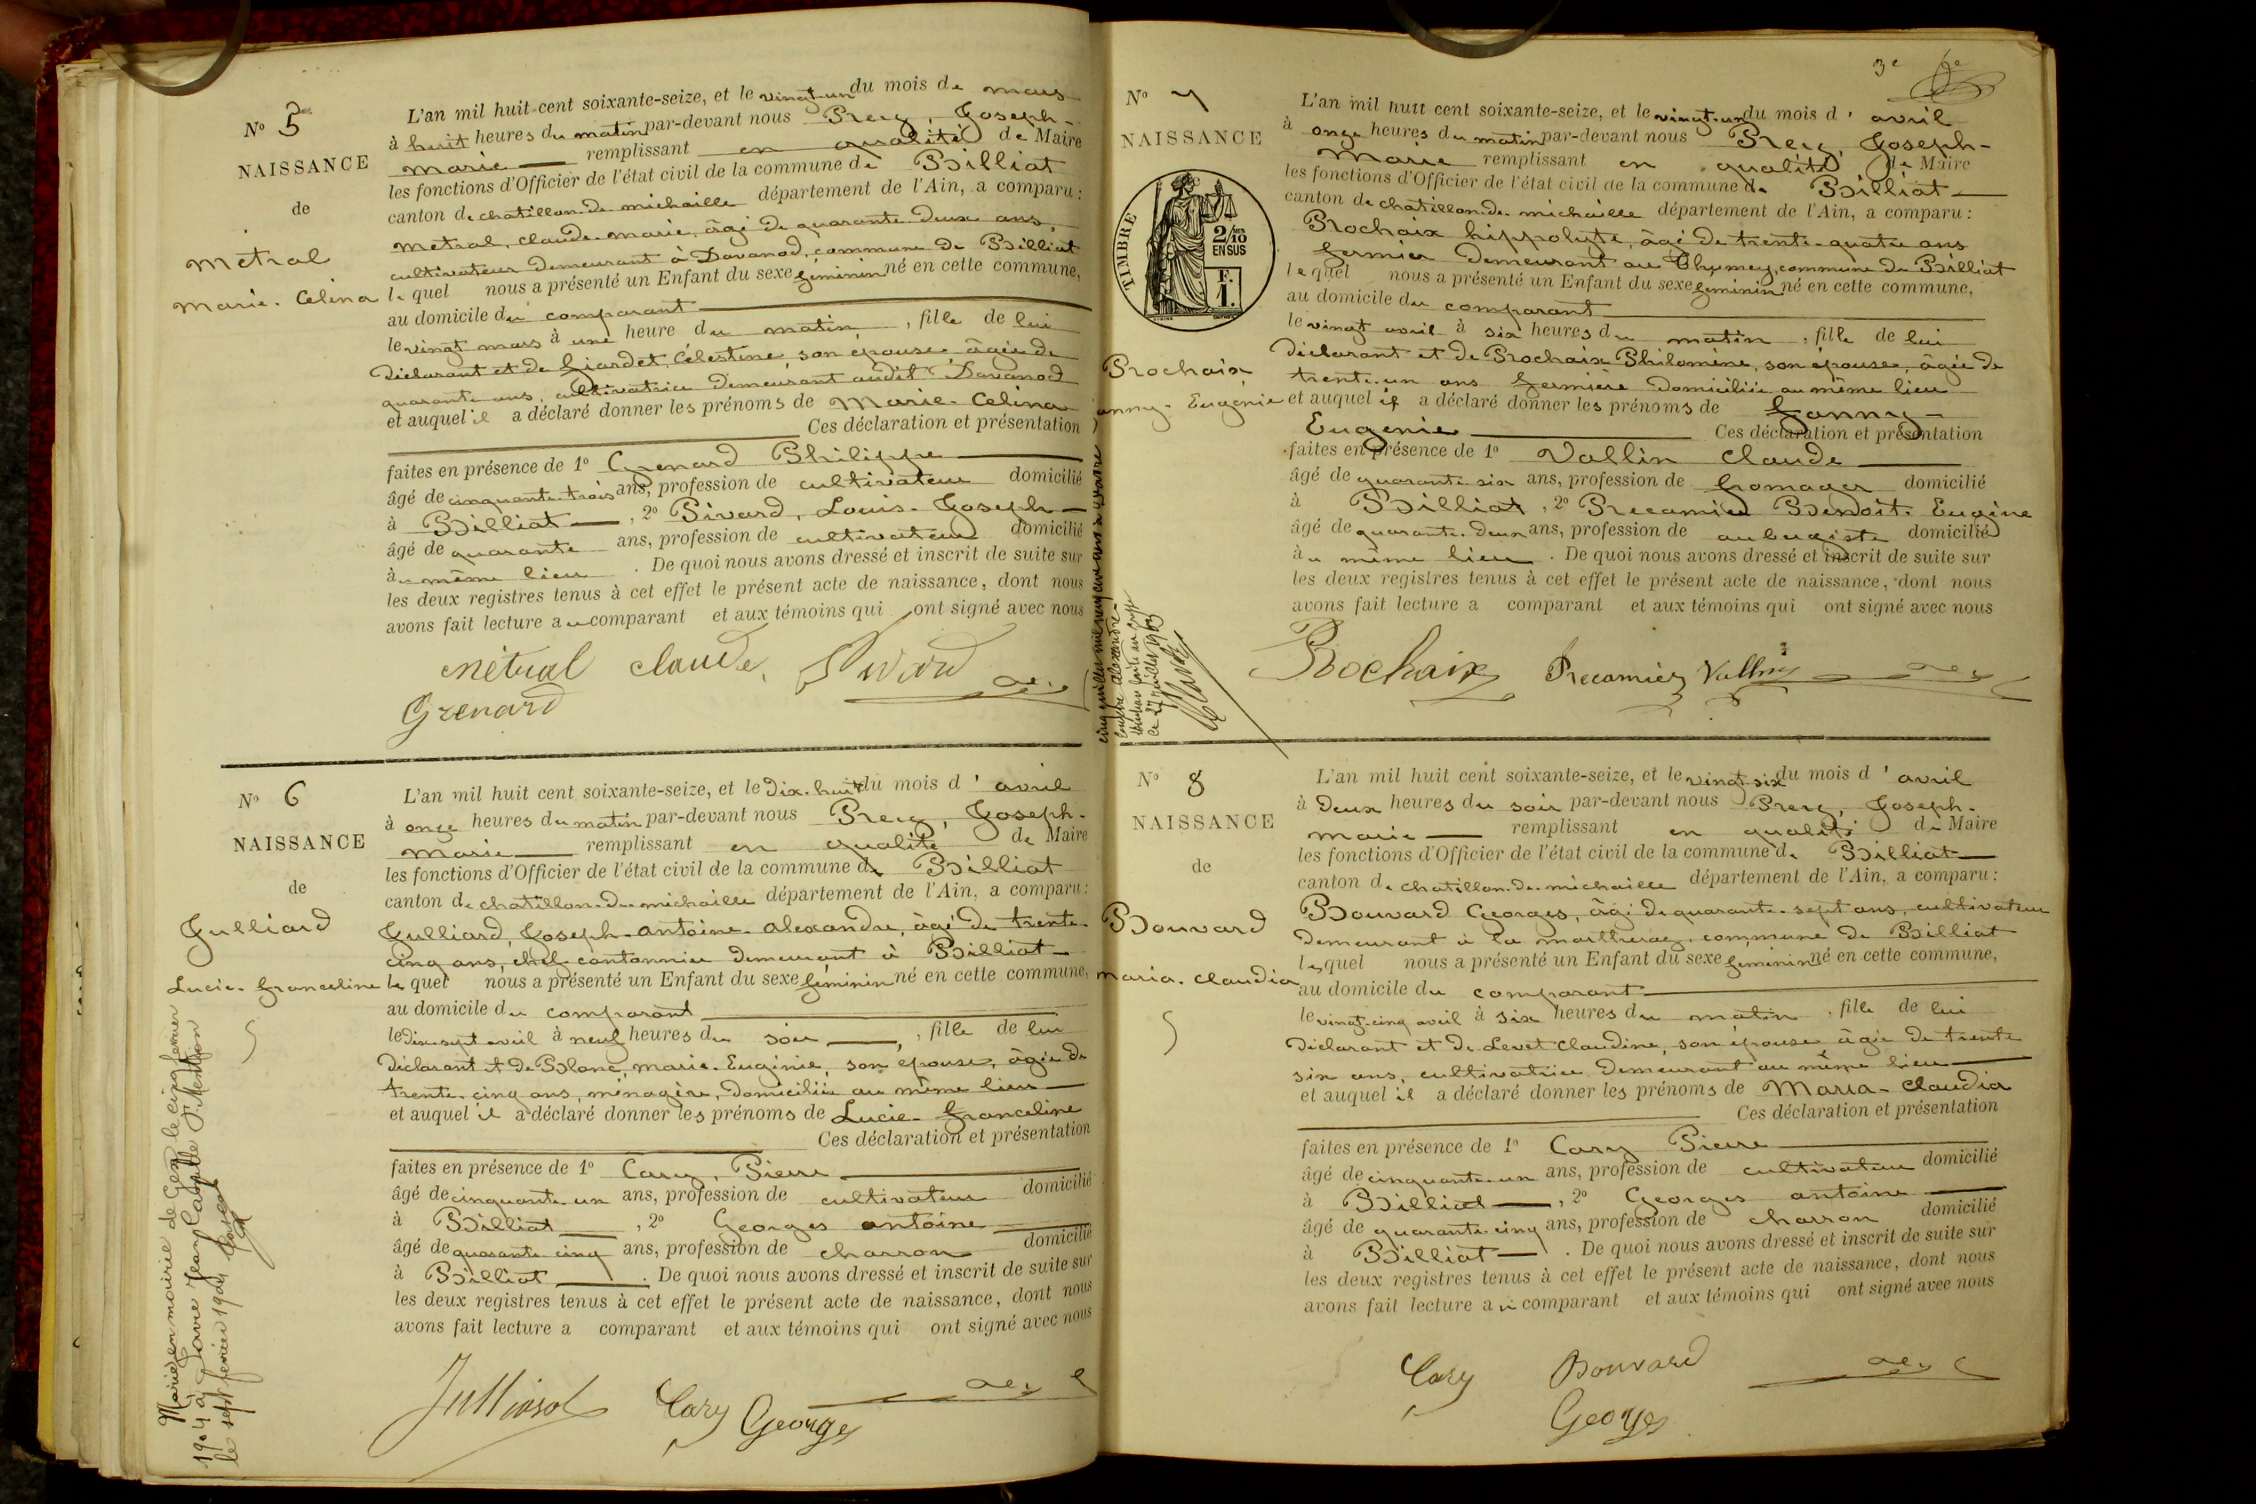 N° 5
NAISSANCE
de
Métral
Marie-Célina
L'an mil huit cent soixante-seize, et le vingt-un du mois de mars
à huit heures du matin par-devant nous Prery, Joseph-
Marie remplissant en qualité de Maire
les fonctions d'Officier de l'état civil de la commune de Billiat
canton de chatillon-de-michaille département de l'Ain, a comparu :
Métral, claude-marie, âgé de quarante deux ans,
cultivateur demeurant à Davanod, commune de Billiat
lequel nous a présenté un Enfant du sexe féminin né en cette commune,
au domicile du comparant
le vingt mars à une heure du matin, fille de lui
déclarant et de Giardet, Célestine son épouse, âgée de
quarante ans, cultivatrice demeurant audit Davanod
et auquel il a déclaré donner les prénoms de Marie-Célina
Ces déclaration et présentation
faites en présence de 1° Grenard Philippe
âgé de cinquante-trois ans, profession de cultivateur domicilié
à Billiat, 2° Pivard, Louis-Joseph
âgé de quarante ans, profession de cultivateur domicilié
au même lieu. De quoi nous avons dressé et inscrit de suite sur
les deux registres tenus à cet effet le présent acte de naissance, dont nous
avons fait lecture au comparant et aux témoins qui ont signé avec nous
Métral claude Pivard
Grenard
N° 6
NAISSANCE
de
Julliard
Lucie-franceline
Mariée en mairie de Gex le cinq février
1904 à Favre Jean Camille. Pr Mention
le sept février 1904
L'an mil huit cent soixante-seize, et le dix-huit du mois d'avril
à onze heures du matin par-devant nous Prery, Joseph-
Marie remplissant en qualité de Maire
les fonctions d'Officier de l'état civil de la commune de Billiat
canton de chatillon-de-michaille département de l'Ain, a comparu :
Julliard, Joseph-antoine-alexandre, âgé de trente-
cinq ans, chef cantonnier demeurant à Billiat
lequel nous a présenté un Enfant du sexe féminin né en cette commune,
au domicile du comparant
le dix-sept avril à neuf heures du soir, fille de lui
déclarant et de Blanc, marie-Eugénie, son épouse, âgée de
trente-cinq ans, ménagère, domiciliée au même lieu
et auquel il a déclaré donner les prénoms de Lucie-franceline
Ces déclaration et présentation
faites en présence de 1° Cary, Pierre
âgé de cinquante-un ans, profession de cultivateur domicilié
à Billiat, 2° Georges antoine
âgé de quarante cinq ans, profession de charron domicilié
à Billiat. De quoi nous avons dressé et inscrit de suite sur
les deux registres tenus à cet effet le présent acte de naissance, dont nous
avons fait lecture a comparant et aux témoins qui ont signé avec nous
Julliard Cary Georges
3e
N° 7
NAISSANCE
TIMBRE
2/10
EN SUS
F.
1.
Prochaix
fanny-Eugénie
L'an mil huit cent soixante-seize, et le vingt-un du mois d'avril
à onze heures du matin par-devant nous Prery, Joseph-
Marie remplissant en qualité de Maire
les fonctions d'Officier de l'état civil de la commune de Billiat
canton de chatillon-de-michaille département de l'Ain, a comparu :
Prochaix hippolyte, âgé de trente-quatre ans
fermier demeurant au Thumey, commune de Billiat
lequel nous a présenté un Enfant du sexe féminin né en cette commune,
au domicile du comparant
le vingt avril à six heures du matin, fille de lui
déclarant et de Prochaix Philomène, son épouse, âgée de
trente-un ans fermière domiciliée au même lieu
et auquel il a déclaré donner les prénoms de fanny-
Eugénie Ces déclaration et présentation
faites en présence de 1° Vallin claude
âgé de quarante-six ans, profession de fromager domicilié
à Billiat, 2° Precamier Benoit-Eugène
âgé de quarante-deux ans, profession de aubergiste domicilié
au même lieu. De quoi nous avons dressé et inscrit de suite sur
les deux registres tenus à cet effet le présent acte de naissance, dont nous
avons fait lecture a comparant et aux témoins qui ont signé avec nous
Prochaix Precamier Vallin
N° 8
NAISSANCE
de
Bouvard
Maria-claudia
L'an mil huit cent soixante-seize, et le vingt-six du mois d'avril
à deux heures du soir par-devant nous Prery, Joseph-
Marie remplissant en qualité de Maire
les fonctions d'Officier de l'état civil de la commune de Billiat
canton de chatillon-de-michaille département de l'Ain, a comparu :
Bouvard Georges, âgé de quarante-sept ans, cultivateur
demeurant à la commune de Billiat
lequel nous a présenté un Enfant du sexe féminin né en cette commune,
au domicile du comparant
le vingt-cinq avril à six heures du matin, fille de lui
déclarant et de Levet Claudine, son épouse âgée de trente
six ans, cultivatrice demeurant au même lieu
et auquel il a déclaré donner les prénoms de Maria-claudia
Ces déclaration et présentation
faites en présence de 1° Cary Pierre
âgé de cinquante-un ans, profession de cultivateur domicilié
à Billiat, 2° Georges antoine
âgé de quarante-cinq ans, profession de charron domicilié
à Billiat. De quoi nous avons dressé et inscrit de suite sur
les deux registres tenus à cet effet le présent acte de naissance, dont nous
avons fait lecture au comparant et aux témoins qui ont signé avec nous
Cary Bouvard
Georges